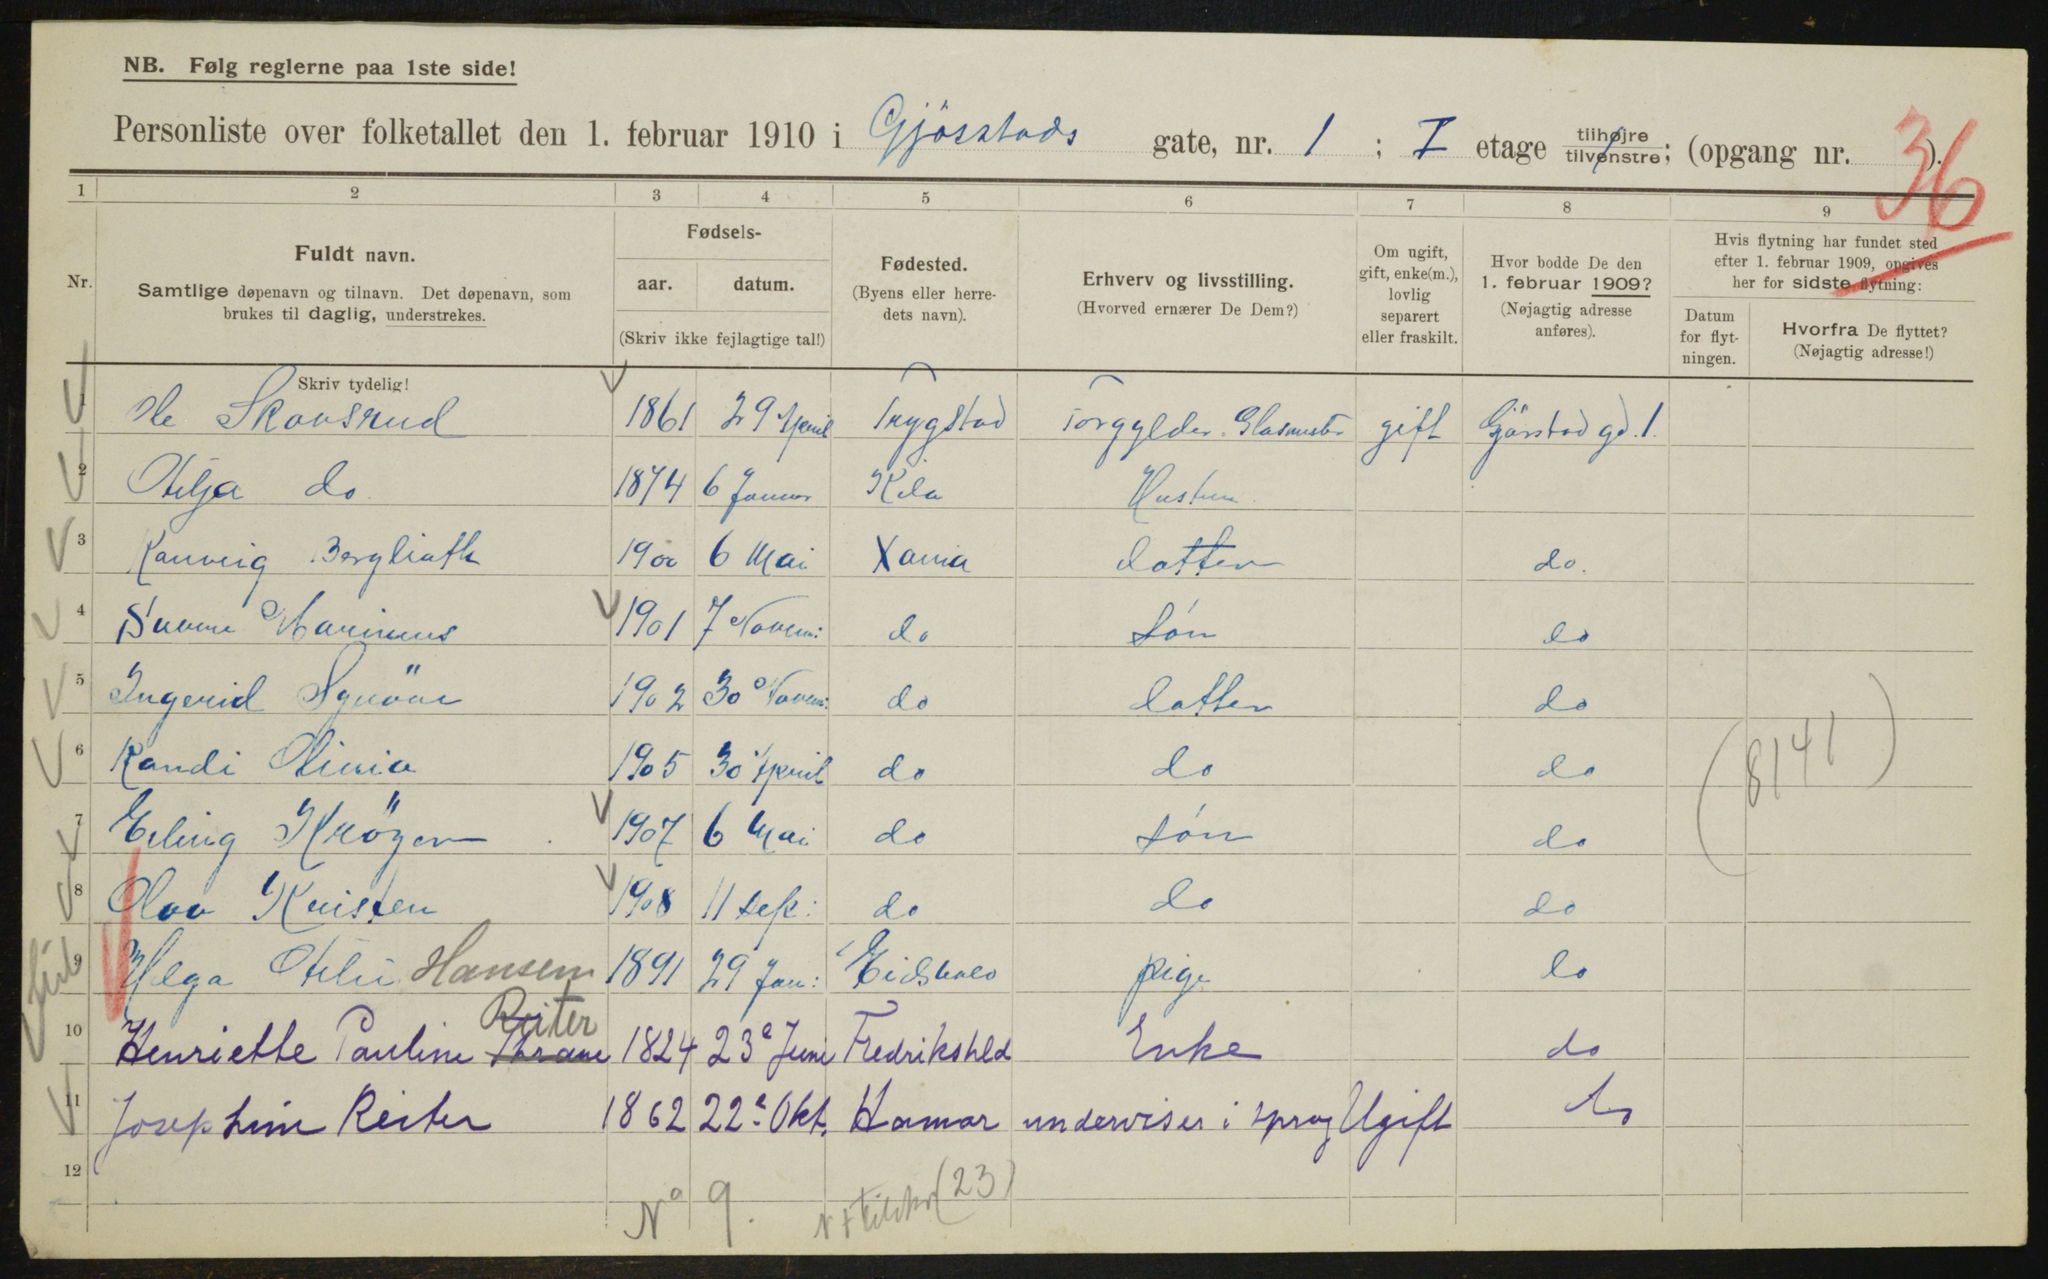 NB. Følg reglerne paa 1ste side!
Personliste over folketallet den 1. februar 1910 i Gjösstads gate, nr. 1 ; I etage tilhøjre tilvenstre; (opgang nr. ).
36
1 2 3 4 5 6 7 8 9
Nr. Fuldt navn. Samtlige døpenavn og tilnavn. Det døpenavn, som brukes til daglig, understrekes.
Fødsels- aar. datum. (Skriv ikke fejlagtige tal!)
Fødested. (Byens eller herredets navn).
Erhverv og livsstilling. (Hvorved ernærer De Dem?)
Om ugift, gift, enke(m.), lovlig separert eller fraskilt.
Hvor bodde De den 1. februar 1909? (Nøjagtig adresse anføres).
Hvis flytning har fundet sted efter 1. februar 1909, opgives her for sidste flytning:
Datum for flytningen. Hvorfra De flyttet? (Nøjagtig adresse!)
Skriv tydelig!
1 Ole Skovsrud 1861 29 April Trygstad Forgylder. Glasmester gift Gjörstad gd. 1.
2 Otilja do. 1874 6 Januar Kila Hustru
3 Ranveig Berglioth 1900 6 Mai Xania datter do.
4 Marinius 1901 7 Novem: do Sön do
5 Ingerid 1902 30 Novem: do datter do
6 Randi Olivia 1905 30 April do do do
7 Erling Kröger 1907 6 Mai do Sön do
8 Olav Kristen 1908 11 Sep: do do do
9 Helga Otilie Hansen 1891 29 Jan: Eidsvold pige do
Reiter
10 Henriette Pauline Thrane 1824 23e Juni Fredrikshld Enke do
11 Josephine Reiter 1862 22e Okt. Hamar underviser i sprog Ugift do
12
(8141)
No 9. (23)